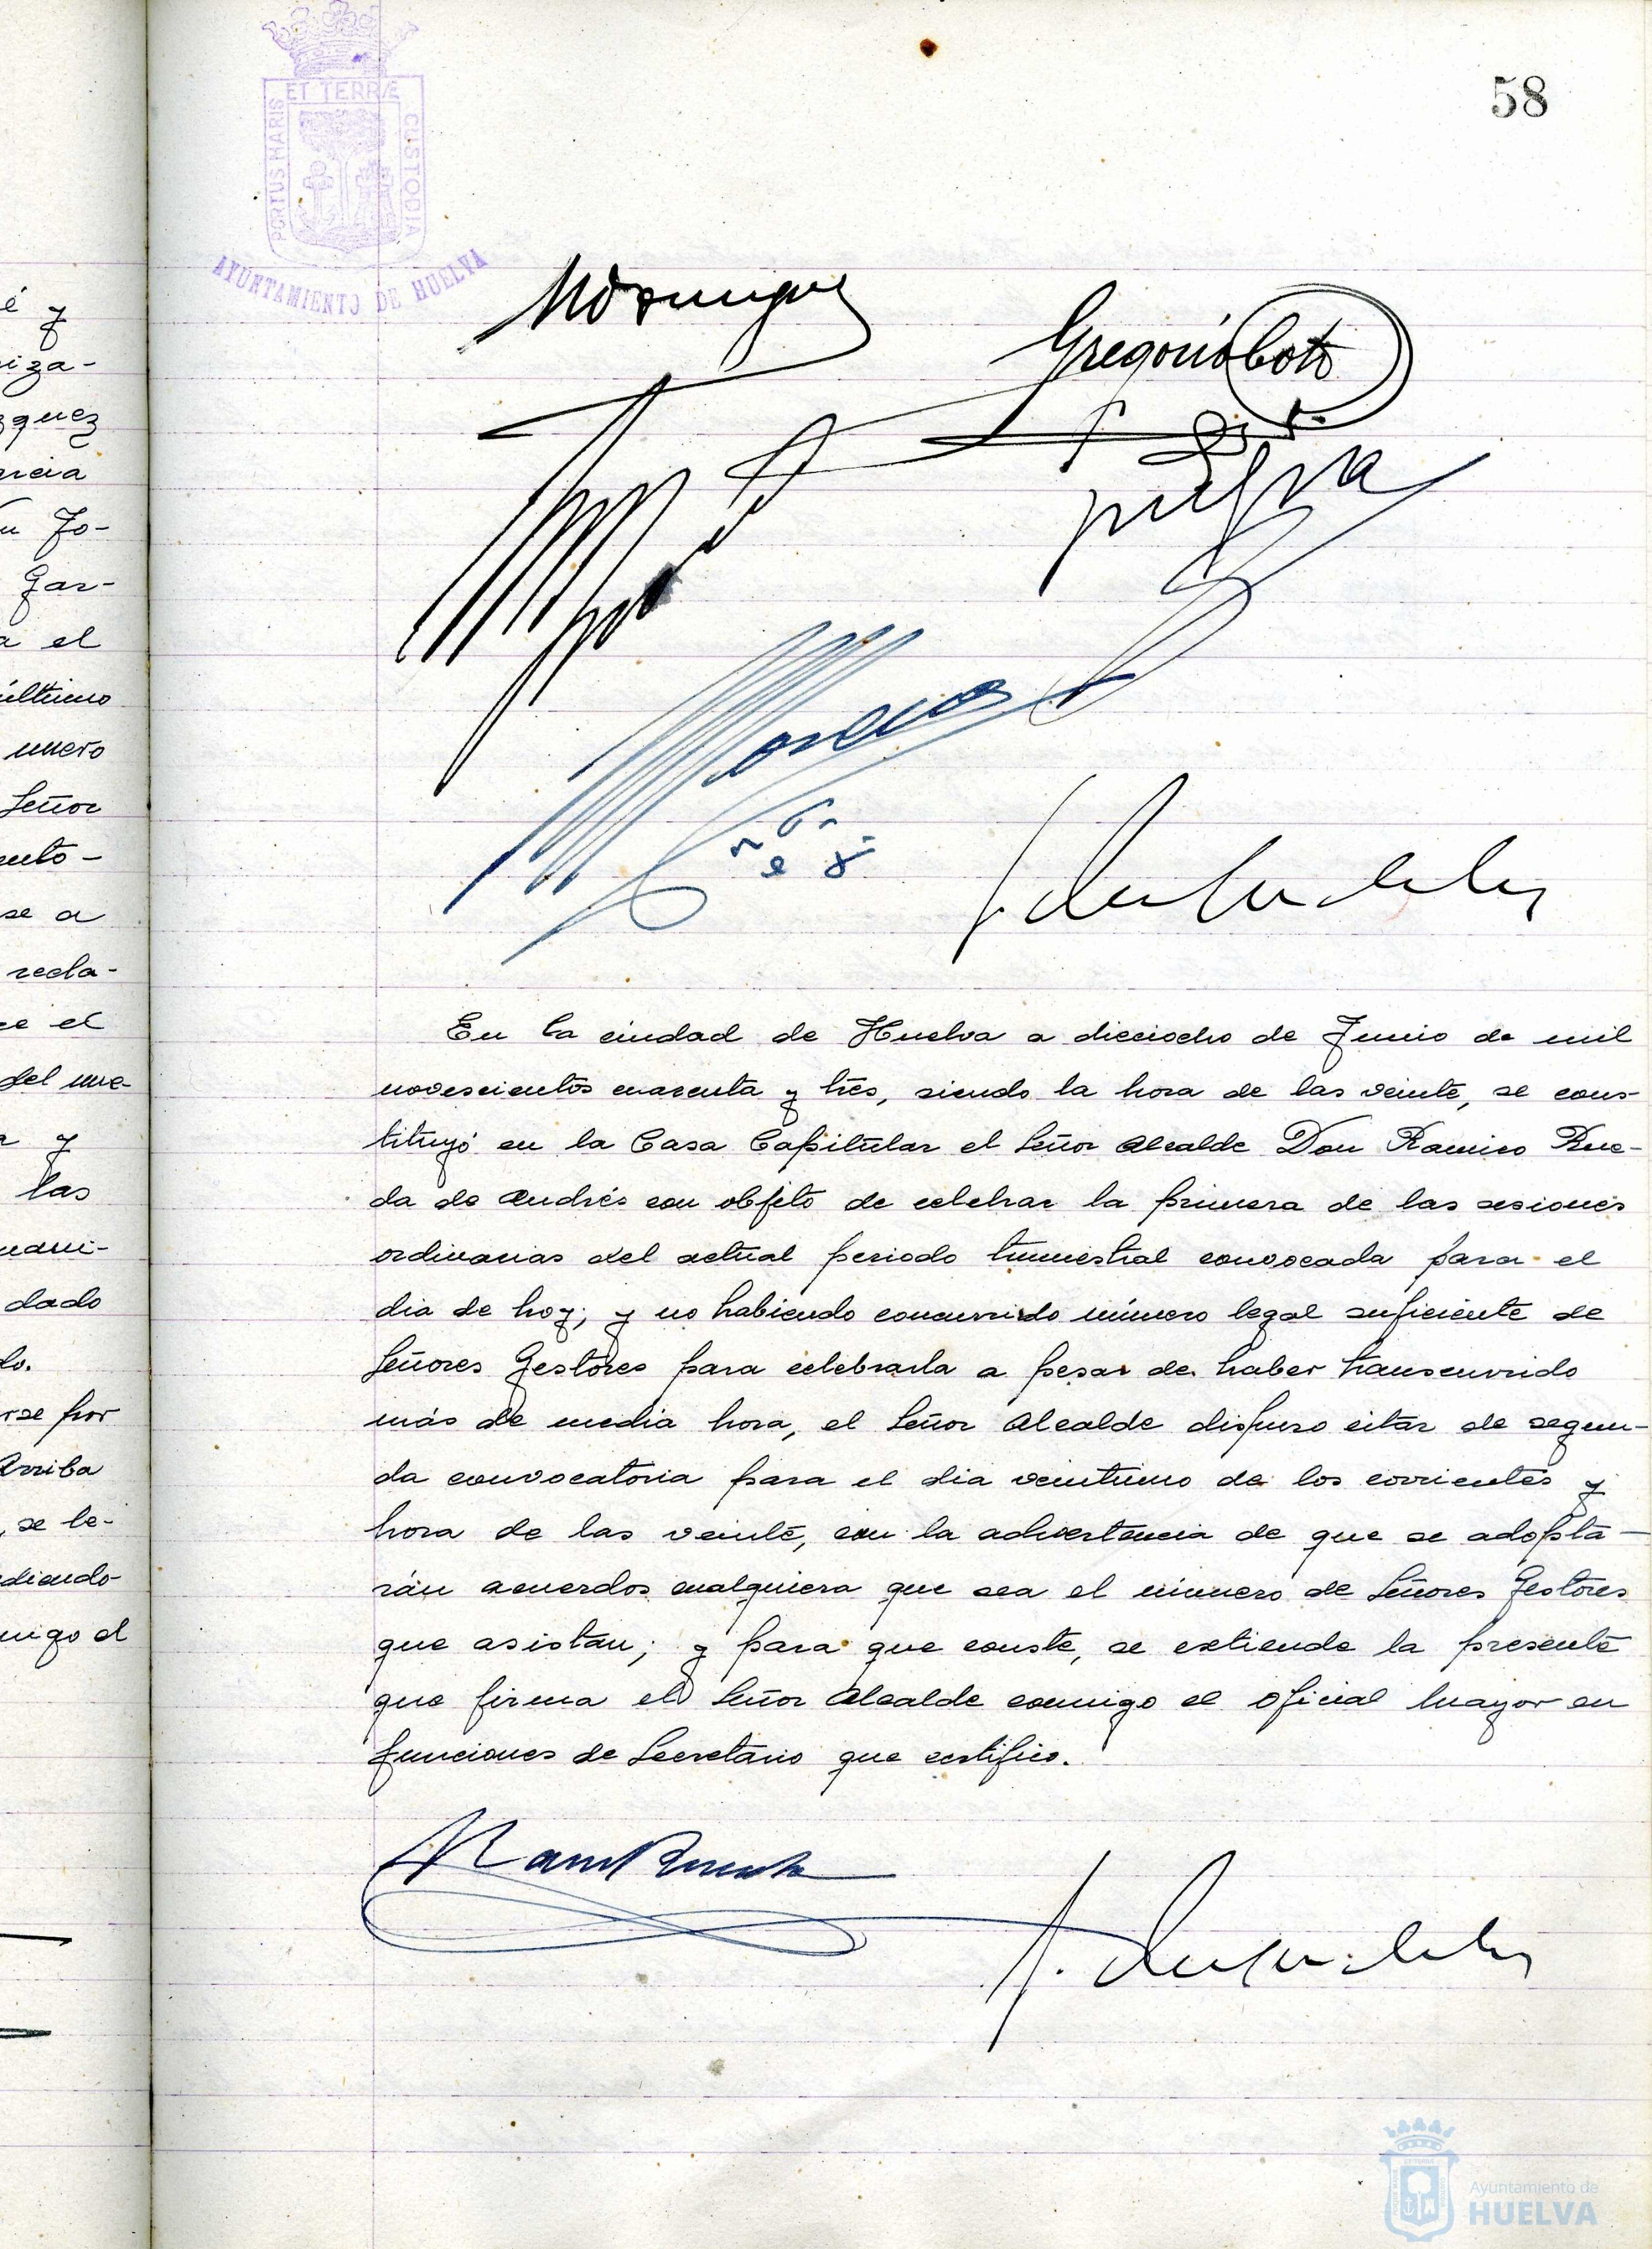 ET TERRÆ
PORTUS MARIS
CUSTODIA
AYUNTAMIENTO DE HUELVA
58
é y
riza-
zquez
arcia
Jo-
Gar-
a el
último
mero
Señor
se a
recla-
el
del
y
las
dado
do.
rse por
Arriba
se le-
diendo
migo el
Gregorio Coto
En la ciudad de Huelva a dieciocho de Junio de mil
novescientos cuarenta y tres, siendo la hora de las veinte, se cons-
tituyó en la Casa Capitular el Señor Alcalde Don Ramiro Rue-
da de Andrés con objeto de celebrar la primera de las sesiones
ordinarias del actual periodo trimestral convocada para el
dia de hoy; y no habiendo concurrido número legal suficiente de
Señores Gestores para celebrarla a pesar de haber transcurrido
más de media hora, el Señor Alcalde dispuso citar de segun-
da convocatoria para el dia veintiuno de los corrientes y
hora de las veinte, con la advertencia de que se adopta-
rán acuerdos cualquiera que sea el número de Señores Gestores
que asistan; y para que conste, se extiende la presente
que firma el Señor Alcalde conmigo el Oficial Mayor en
funciones de Secretario que certifico.
Ayuntamiento de
HUELVA